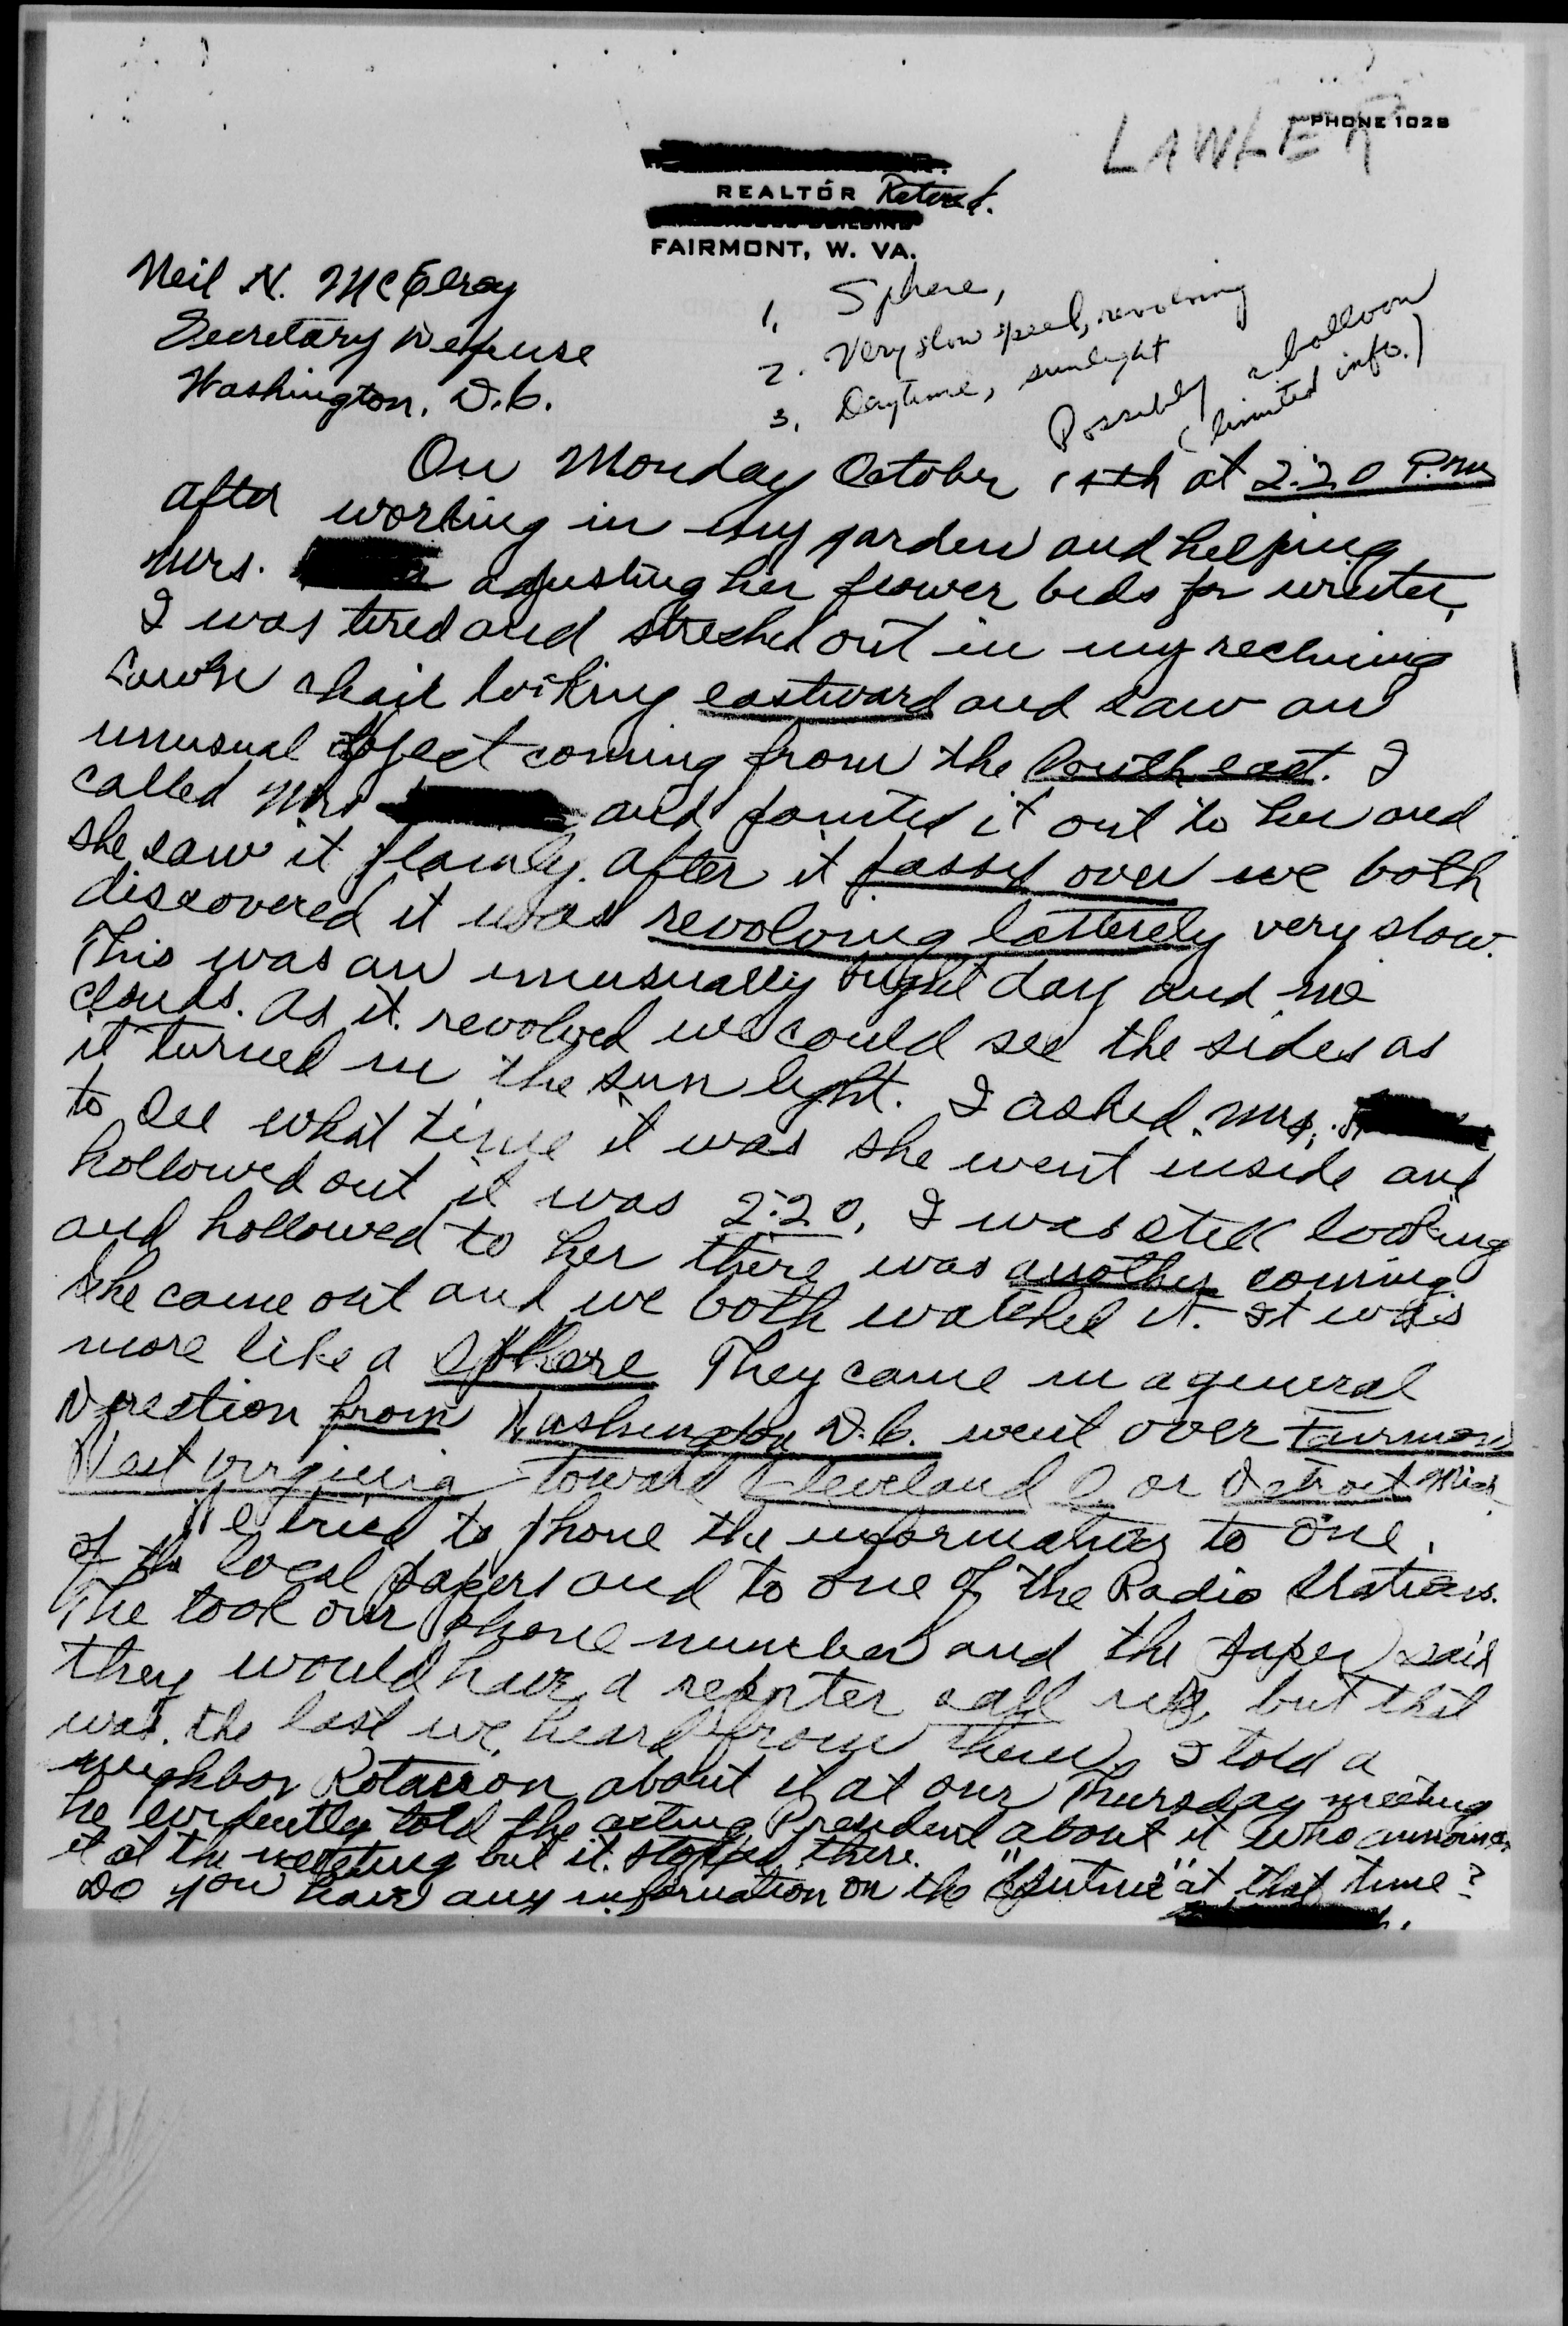 PHONE 1028
LAWLER
REALTOR Retired.
FAIRMONT, W. VA.
Neil H. McElroy
Secretary Defense
Washington, D.C.
1. Sphere,
2. Very slow speed, revolving
3. Daytime, sunlight
Possibly a balloon
(limited info.)
On Monday October 14th at 2:20 P.M.
after working in my garden and helping
Mrs. adjusting her flower beds for winter,
I was tired and streched out in my reclining
Lawn chair looking eastward and saw an
unusual object coming from the South east. I
called Mrs and pointed it out to her and
she saw it plainly. After it passed over we both
discovered it was revolving latterely very slow.
This was an unusually bright day and no
clouds. As it revolved we could see the sides as
it turned in the sun light. I asked Mrs.
to see what time it was she went inside and
hollowed out it was 2:20, I was still looking
and hollowed to her there was another coming
She came out and we both watched it. It was
more like a Sphere They came in a general
Direction from Washington D.C. went over Fairmont
West Virginia toward Cleveland O. or Detroit Mich
We tried to phone the information to one
of the local papers and to one of the Radio Stations.
The took our phone number and the paper said
they would have a reporter call us, but that
was the last we heard from them. I told a
neighbor Rotarion about it at our Thursday meeting
he evidently told the acting President about it who announced
it at the meeting but it stopped there.
Do you have any information on the "Sputnic" at that time?